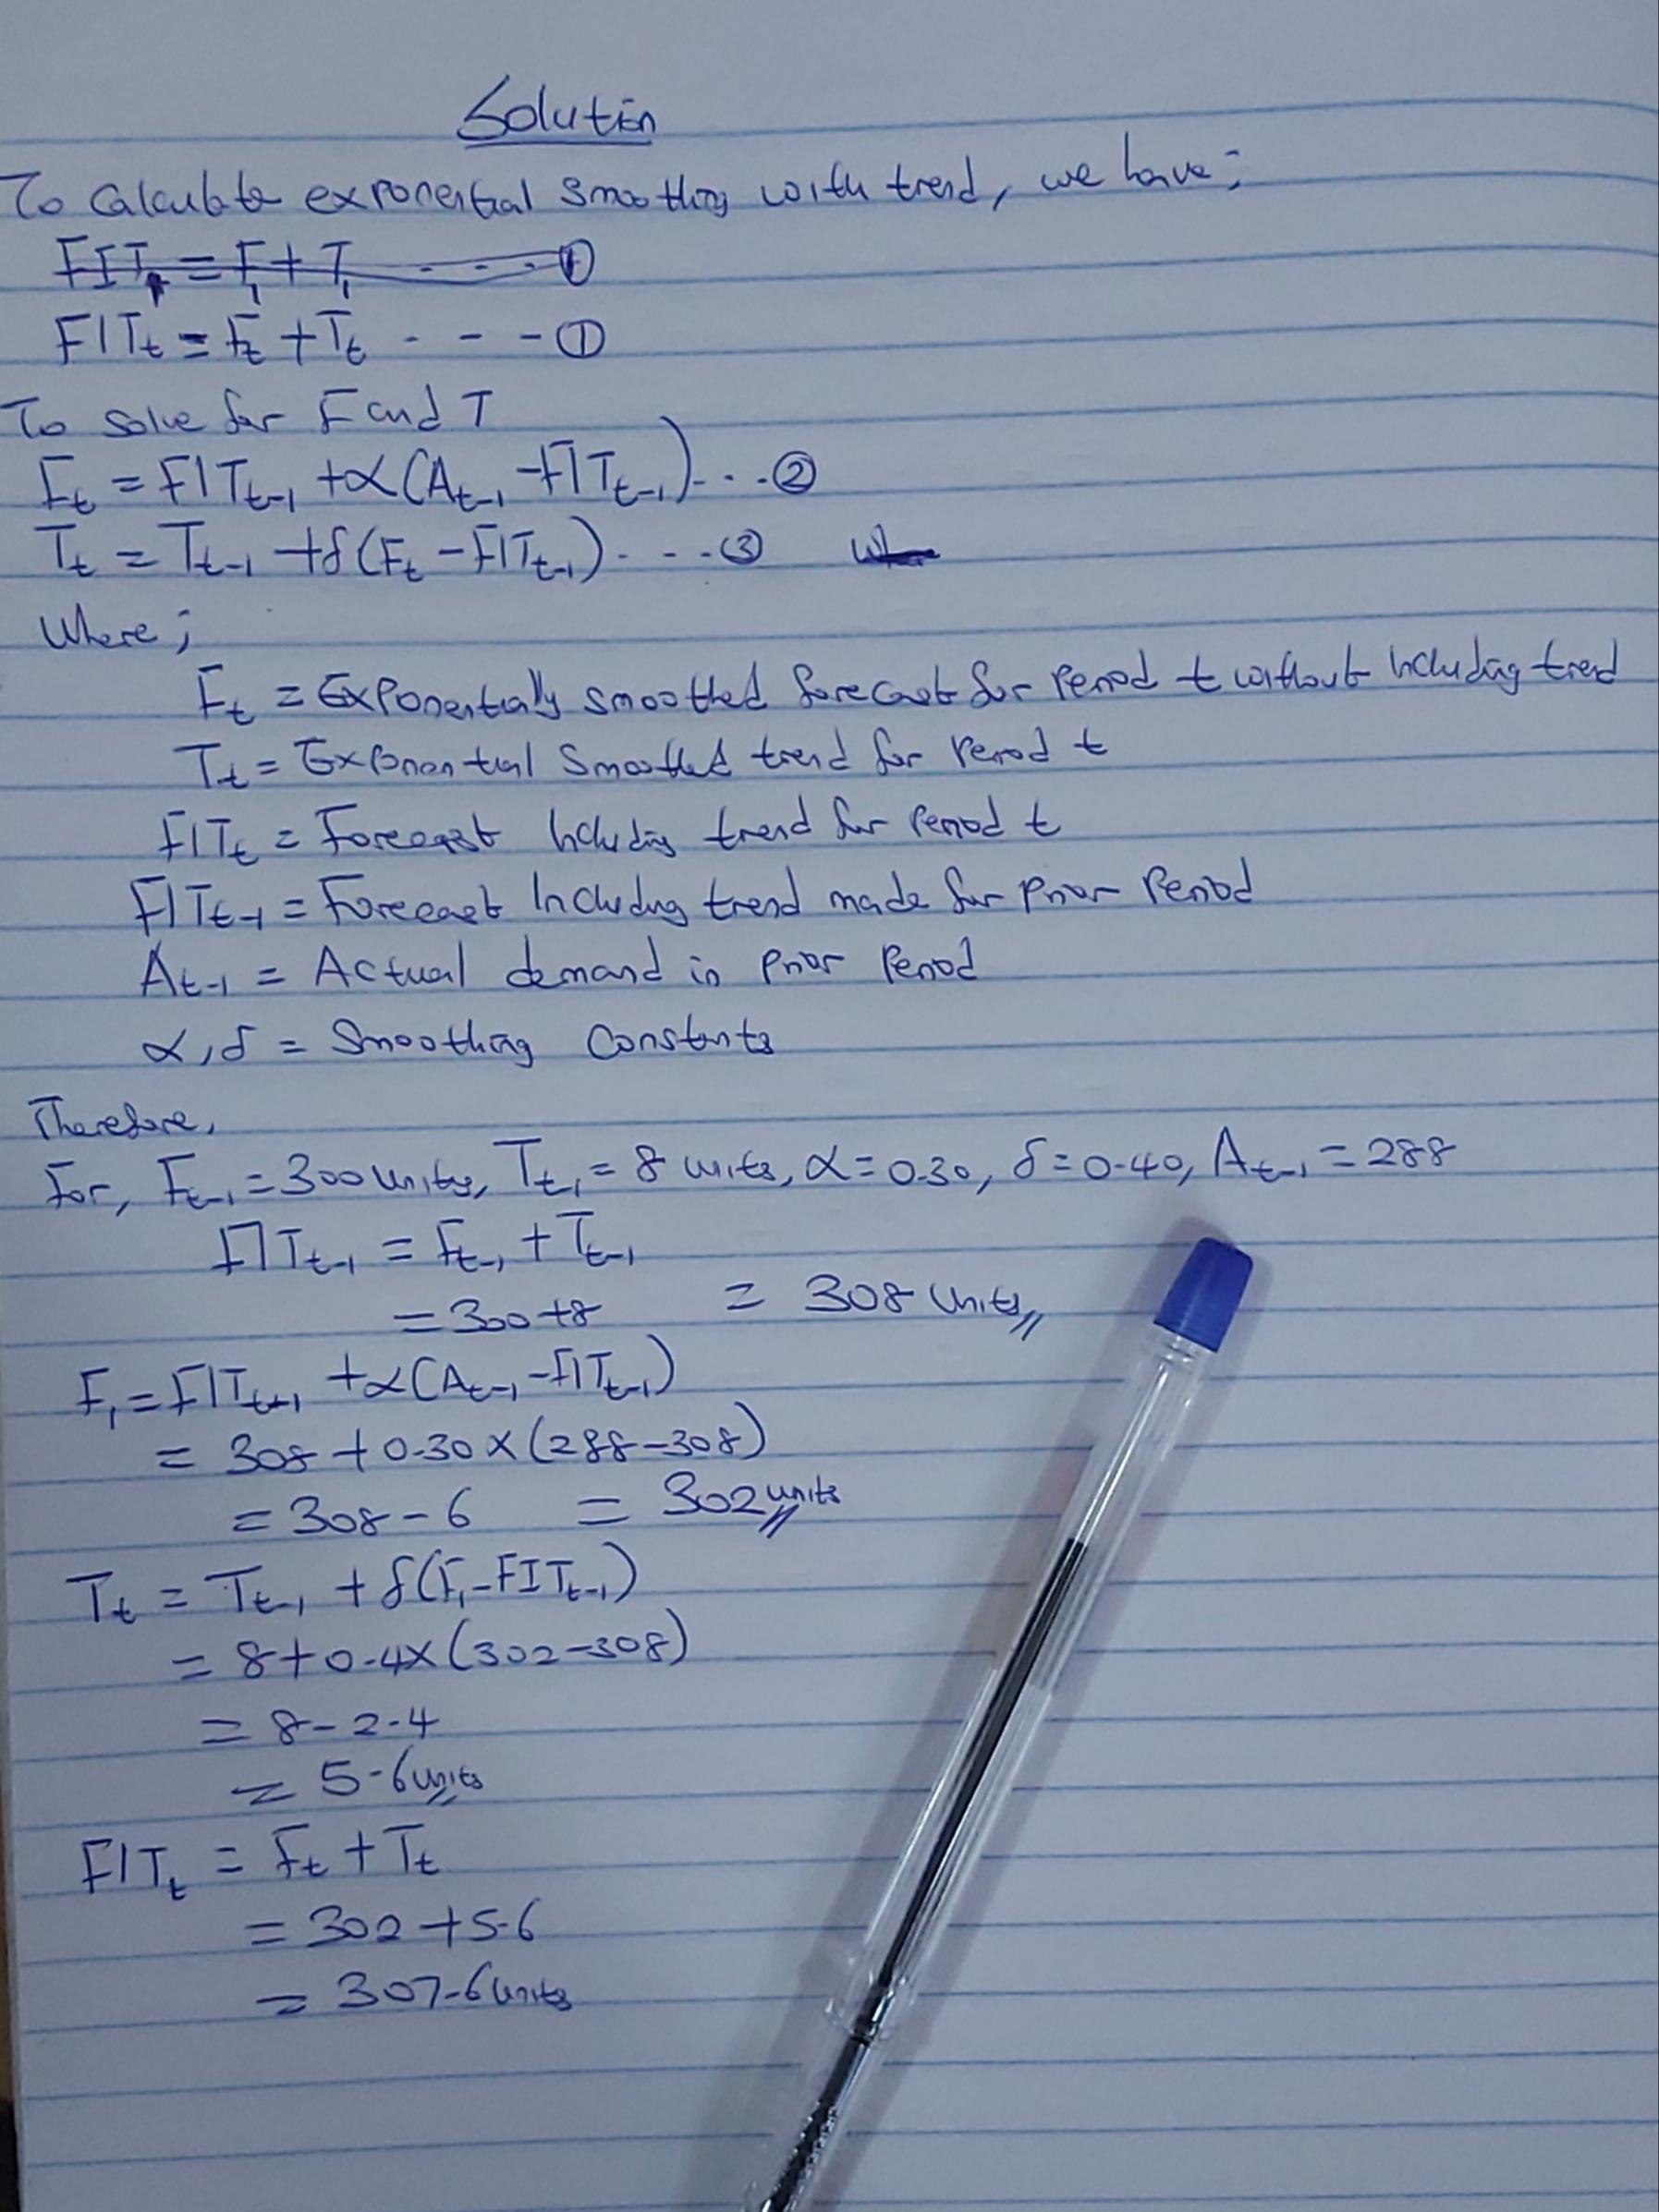 Solution
To Calculate exponential smoothing with trend, we have;
FIT₁ = F₁ + T₁ - - - ①
FITt = Ft + Tt - - - ①
To solve for F and T
Ft = FITt-1 + α(At-1 - FITt-1)... ②
Tt = Tt-1 + δ(Ft - FITt-1)---- ③
Where;
Ft = Exponentially smoothed forecast for Period t without including trend
Tt = Exponential Smoothed trend for Period t
FITt = Forecast Including trend for Period t
FITt-1 = Forecast Including trend made for Prior Period
At-1 = Actual demand in Prior Period
α, δ = Smoothing Constants
Therefore,
For, Ft-1 = 300 units, Tt-1 = 8 units, α = 0.30, δ = 0.40, At-1 = 288
FITt-1 = Ft-1 + Tt-1
= 300 + 8 = 308 Units
F₁ = FITt-1 + α(At-1 - FITt-1)
= 308 + 0.30 × (288 - 308)
= 308 - 6 = 302 units
Tt = Tt-1 + δ(F₁ - FITt-1)
= 8 + 0.4 × (302 - 308)
= 8 - 2.4
= 5.6 units
FITt = Ft + Tt
= 302 + 5.6
= 307.6 units